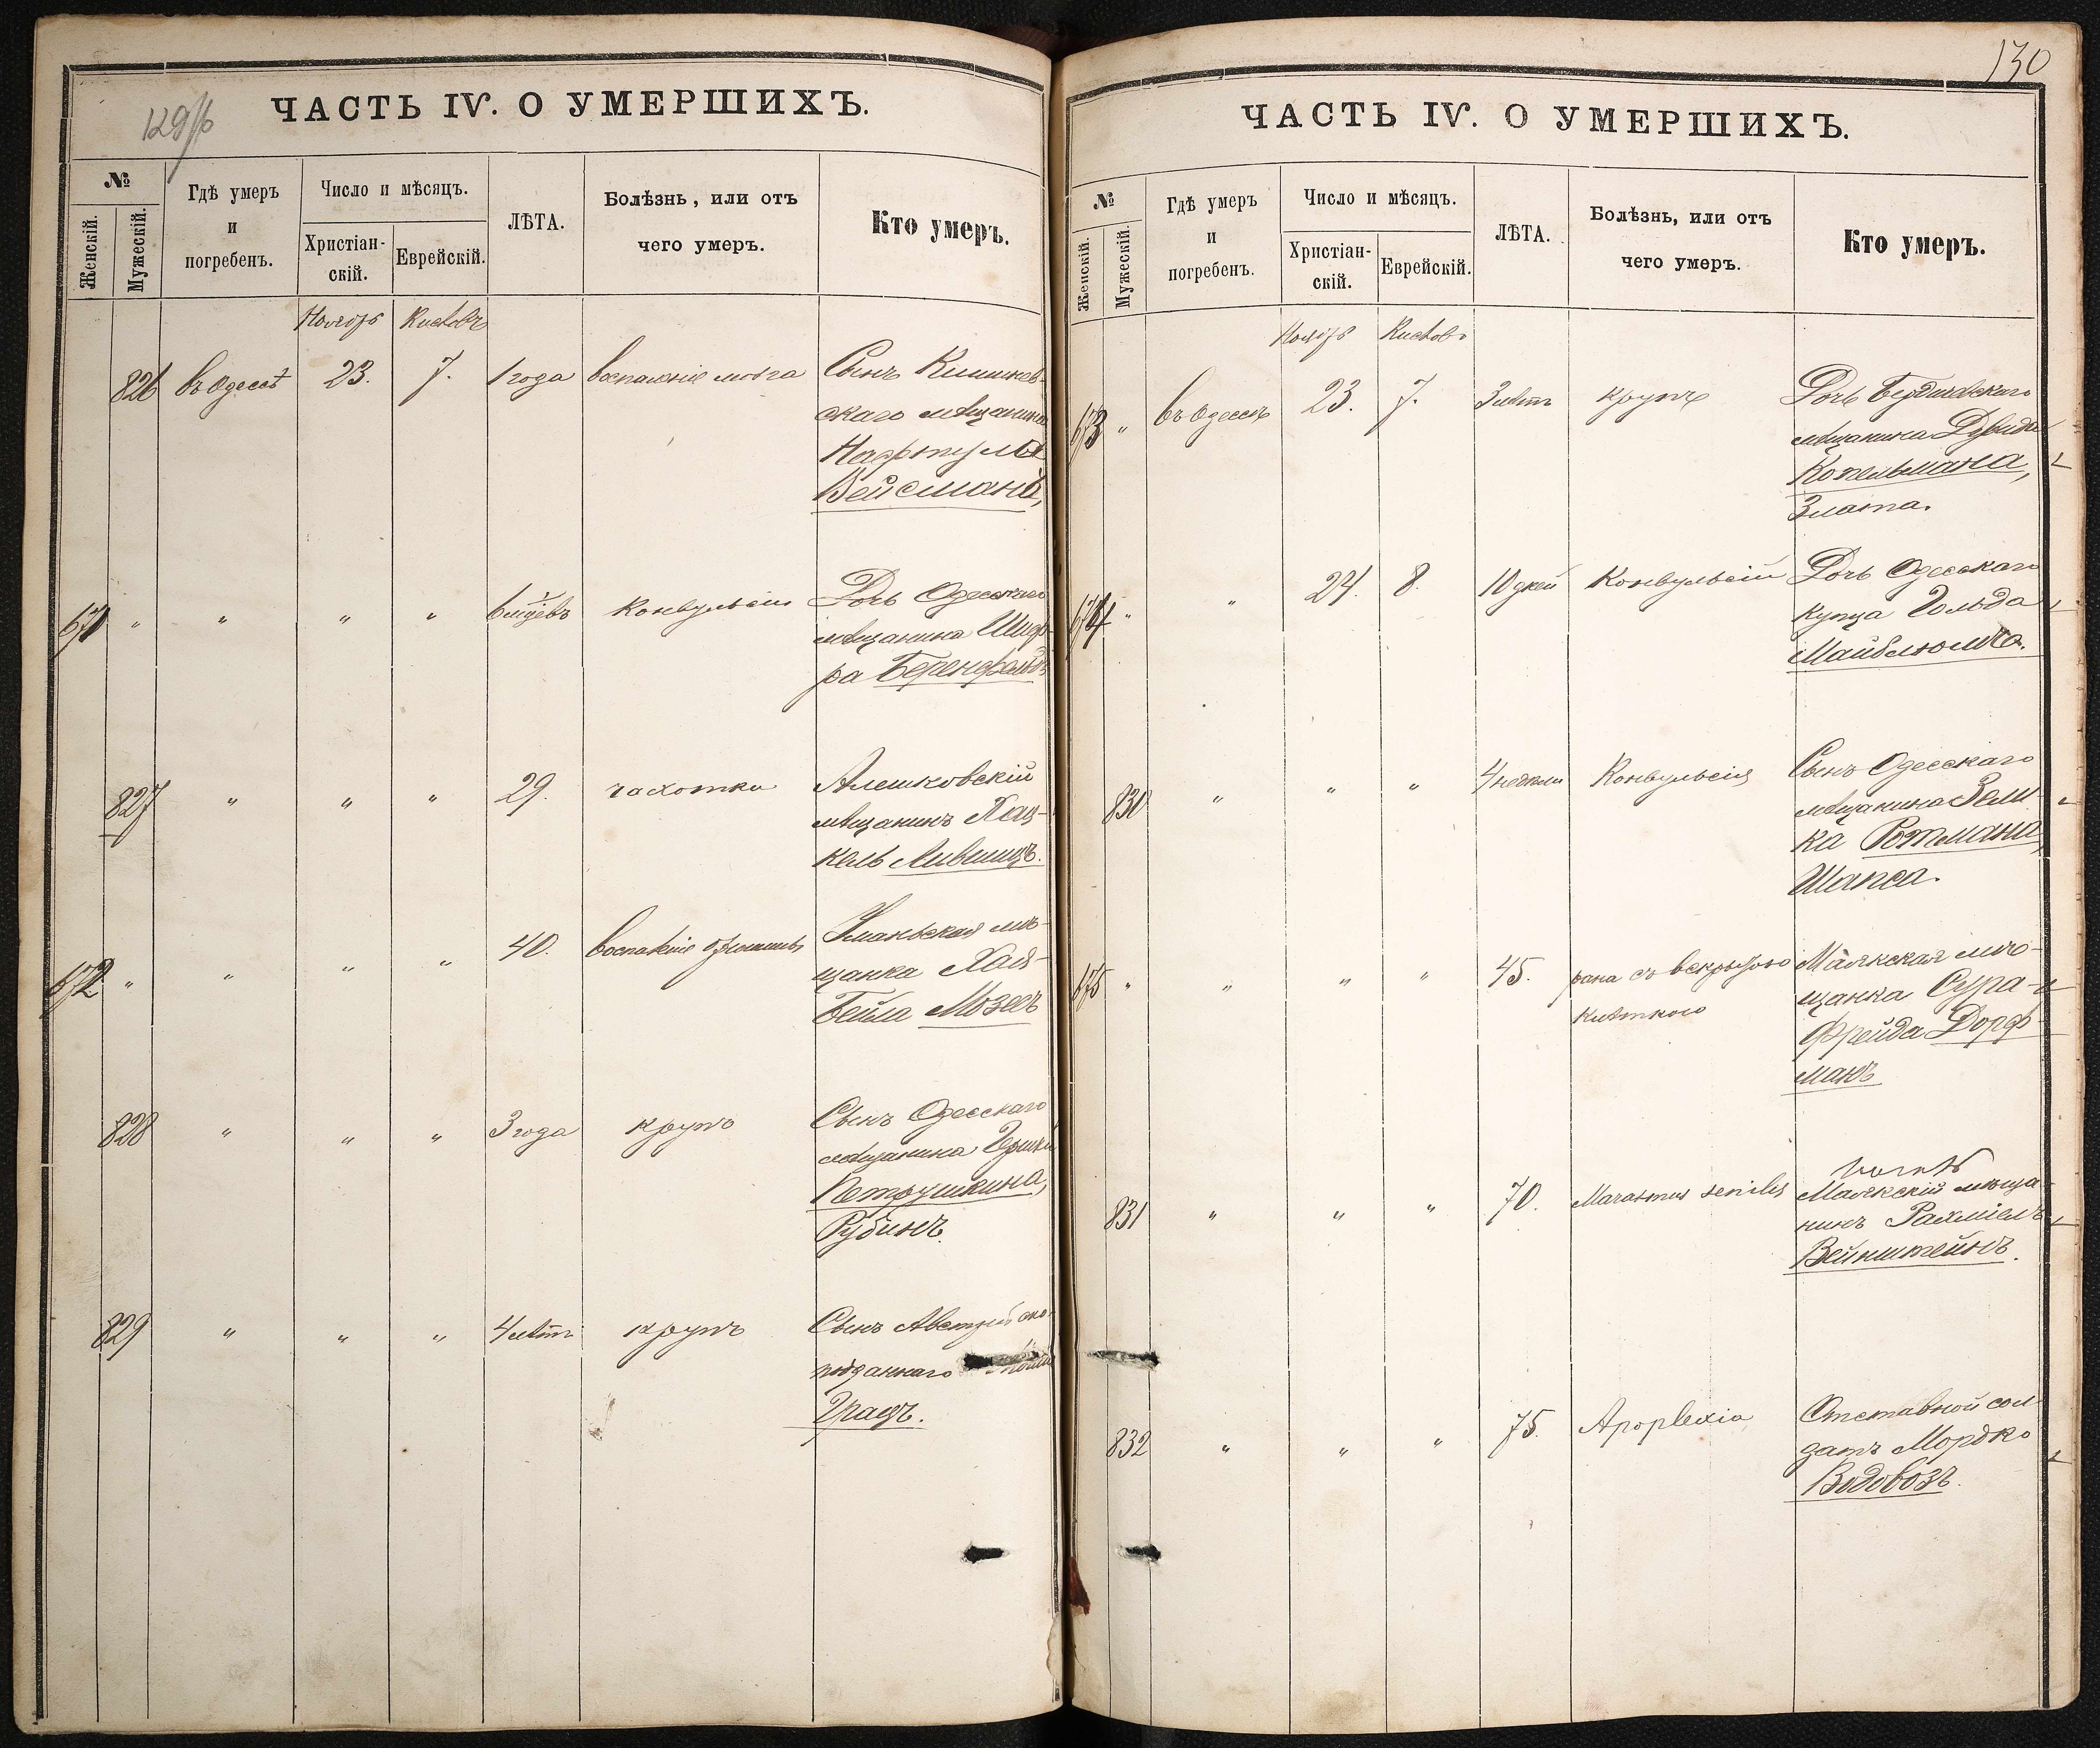 129/б
ЧАСТЬ IV. О УМЕРШИХЪ.
№
Женскій.
Мужескій.
Гдѣ умеръ
и
погребенъ.
Число и мѣсяцъ.
Христіан-
скій.
Еврейскій.
ЛѢТА.
Болѣзнь, или отъ
чего умеръ.
Кто умеръ.
Ноябрь Кислевъ
826 въ Одессѣ 23. 7. 1 года воспаленіе мозга Сынъ Кишинев-
скаго мѣщанина
Нафтулы
Вейсмана,
671 " " " " Конвульсіи Дочь Одесскаго
мѣщанина Шиф-
ра
827 " " " 29. чахотка Алешковскій
мѣщанинъ Хац-
кель Лившицъ.
672 " " " " 40. воспаленіе Уманьская мѣ-
щанка Хая-
Бейла Мозесъ
828 " " " 3 года крупъ Сынъ Одесскаго
мѣщанина Гершки
Петрушкина,
Рубинъ.
829 " " " 4 лѣтъ крупъ Сынъ Австрійско-
подданнаго
Градъ.
130
ЧАСТЬ IV. О УМЕРШИХЪ.
№
Женскій.
Мужескій.
Гдѣ умеръ
и
погребенъ.
Число и мѣсяцъ.
Христіан-
скій.
Еврейскій.
ЛѢТА.
Болѣзнь, или отъ
чего умеръ.
Кто умеръ.
Ноябрь Кислев
673 " въ Одессѣ 23. 7. 3 лѣтъ крупъ Дочь Бердичевскаго
мѣщанина Дувида
Копельмана,
Злата.
674 " " 24. 8. 10 дней Конвульсіи Дочь Одесскаго
купца Гольда
Майблюма.
830 " " " 4 недѣли Конвульсія Сынъ Одесскаго
мѣщанина Зели-
ка Ротмана,
Шапса.
675 " " " " 45. рана съ
Маякская мѣ-
щанка Сура-
Фрейда Дорф-
манъ
831 " " " 70. Marasmus senilis Маякскій мѣща-
нинъ Рахміель
Вейнштейнъ.
832 " " " 75. Apoplexia Отставной сол-
датъ Мордко
Водовозъ.